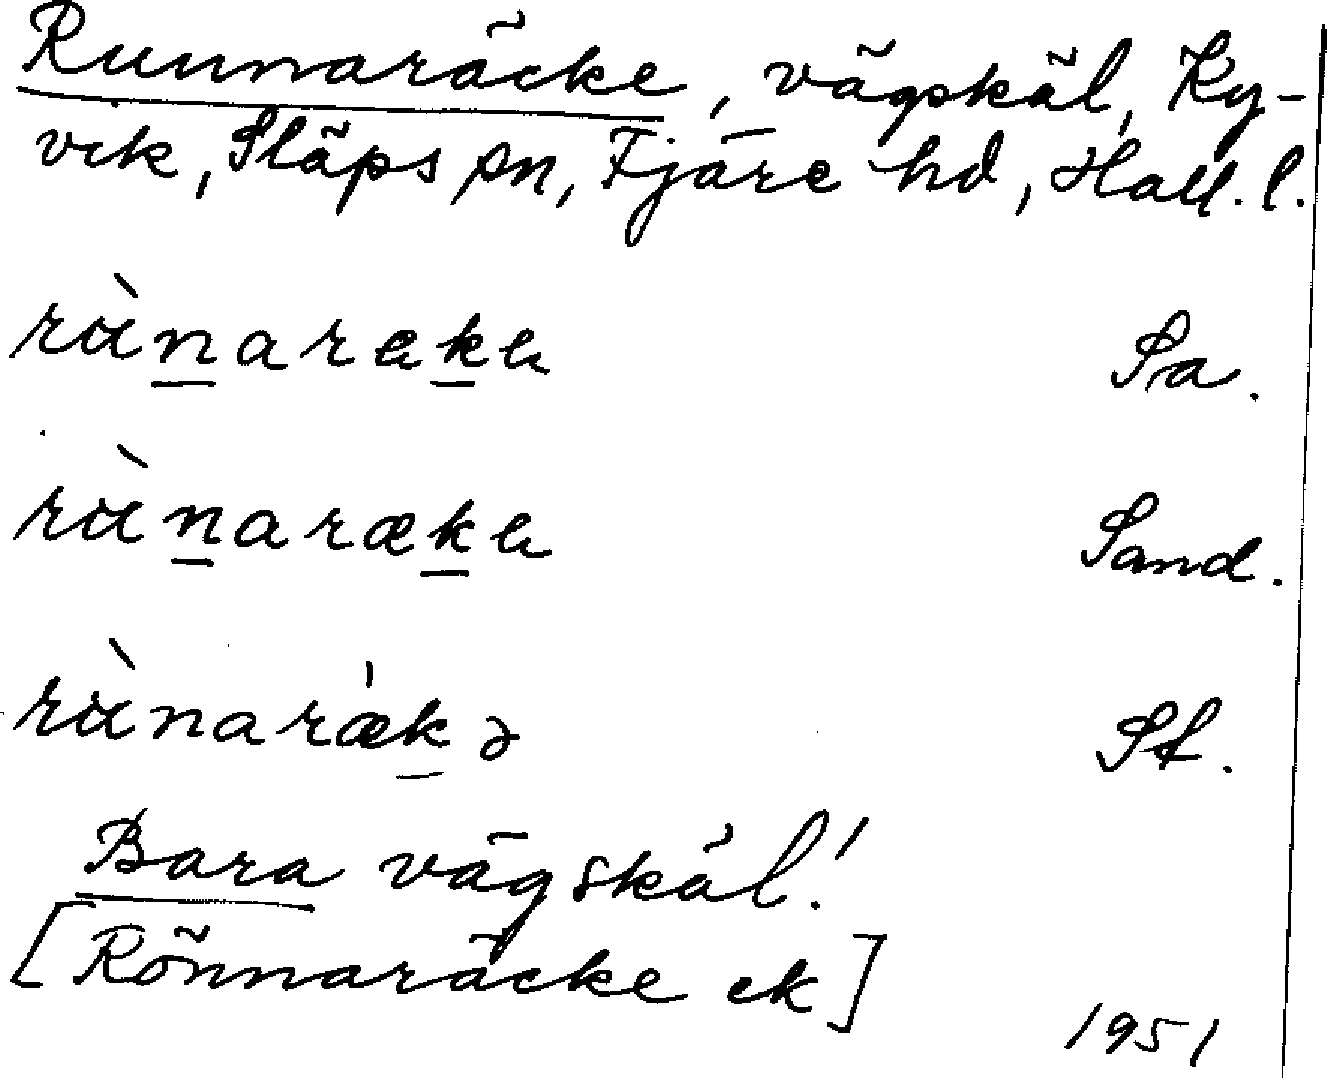 Runnaräcke, vägskäl, Ky-
vik, Släps sn, Fjäre hd, Hall. l.
rùnarækæ Sa.
rùnarækæ Sand.
rùnarækə St.
Bara vägskäl!
[Rönnaräcke ek]
1951